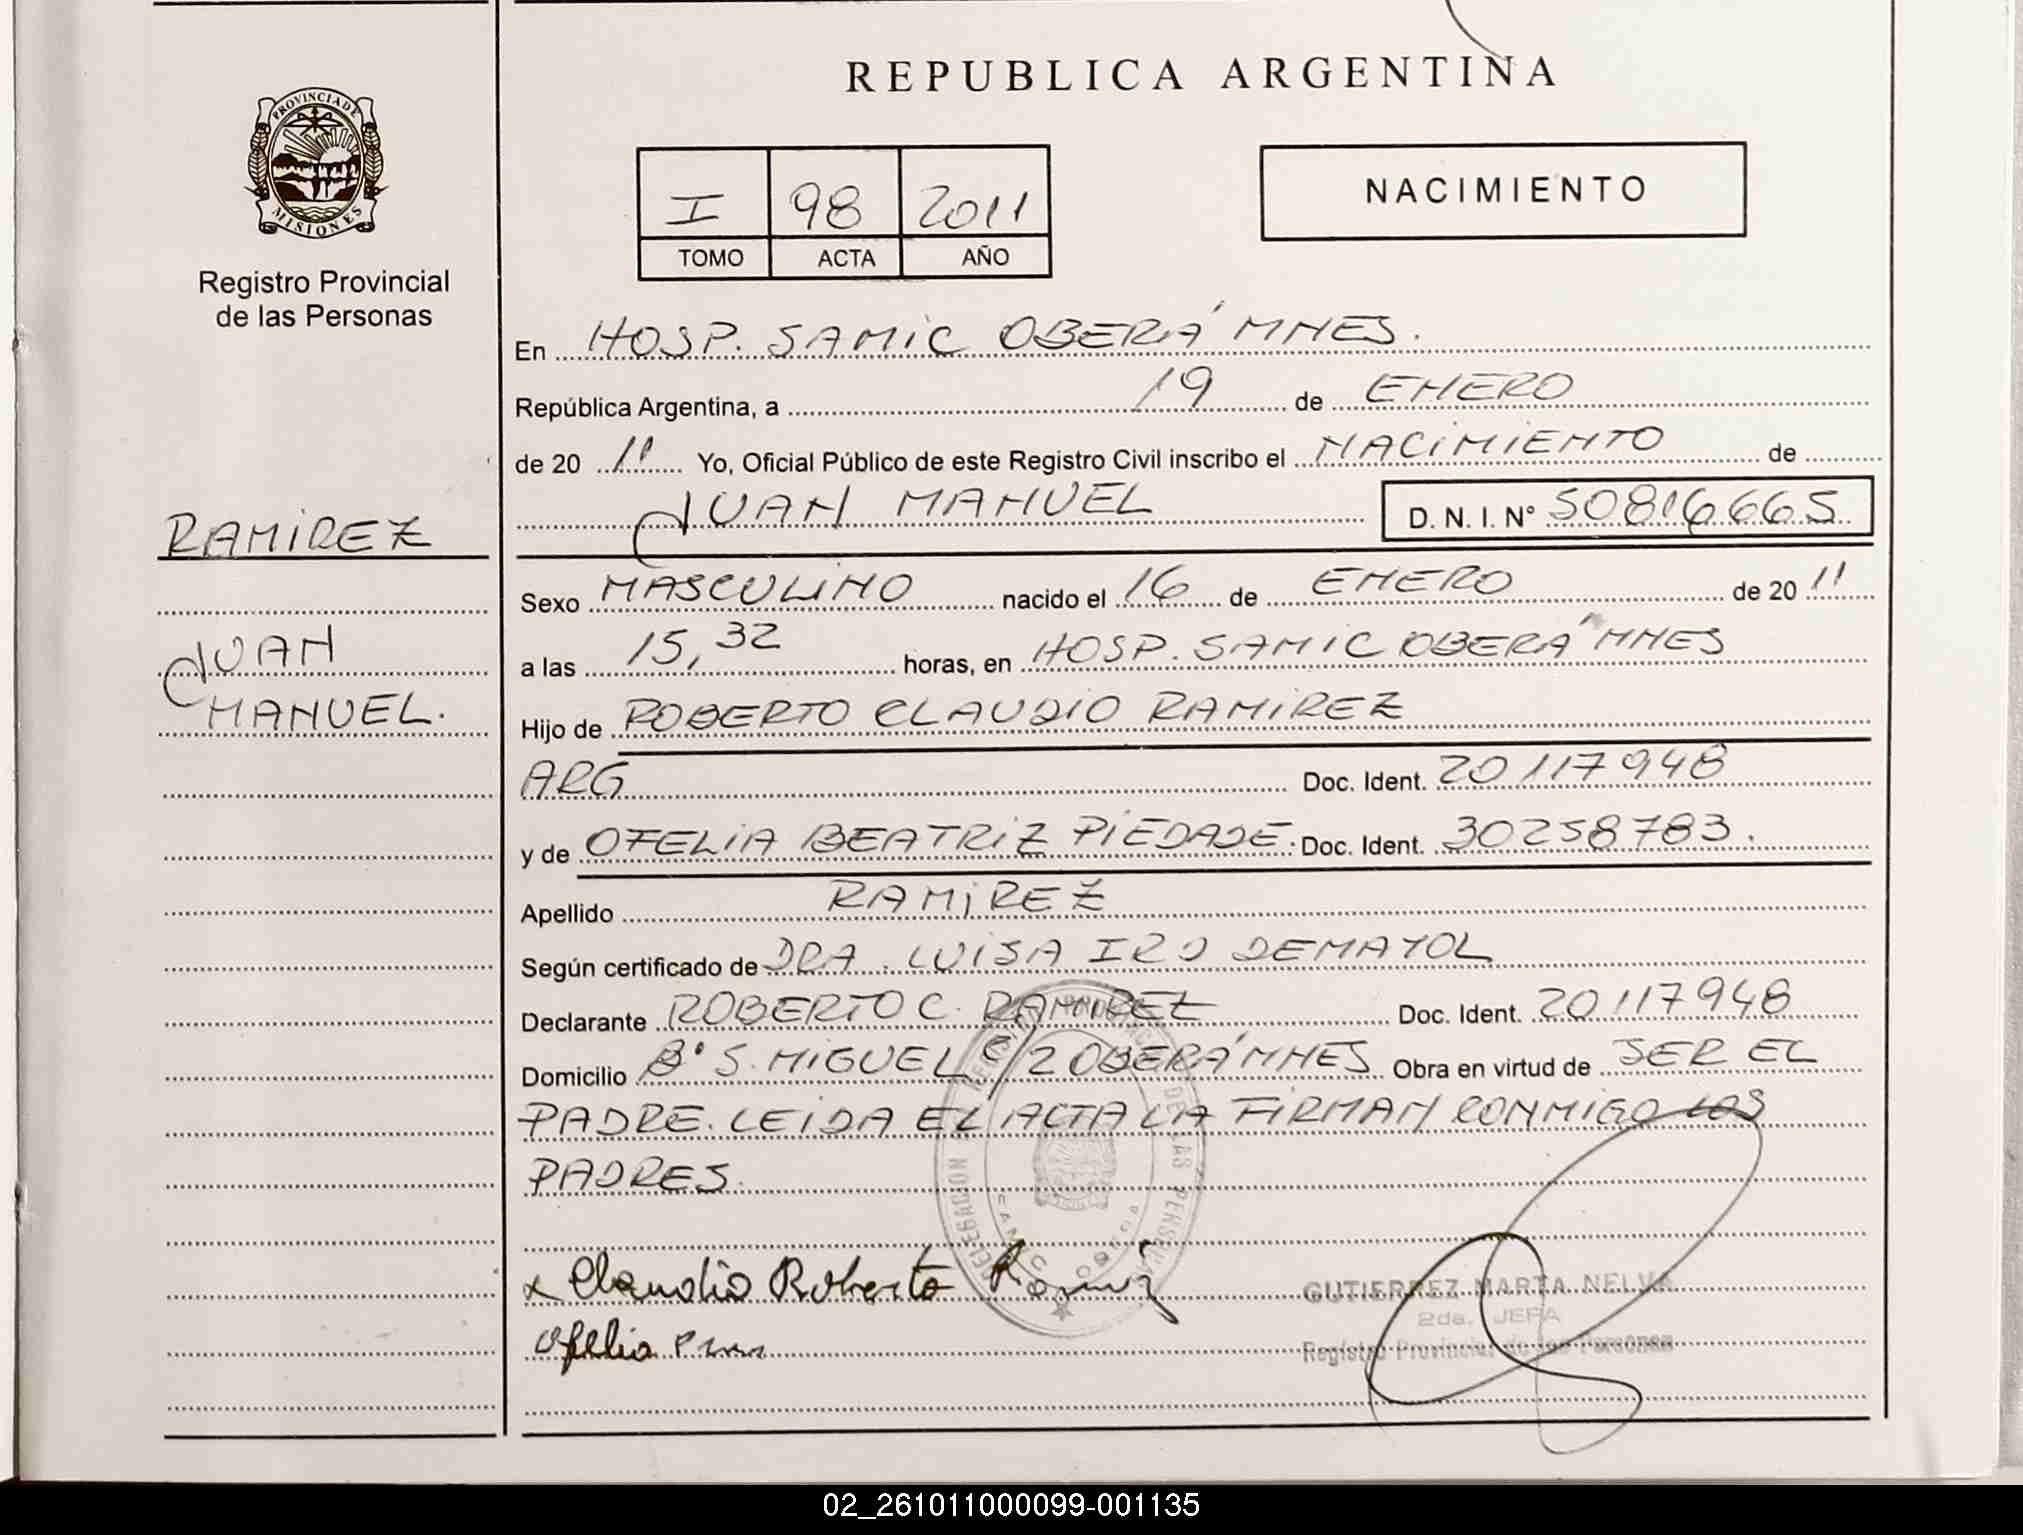 REPUBLICA ARGENTINA
PROVINCIA DE
MISIONES
Registro Provincial
de las Personas
I 98 2011
TOMO ACTA AÑO
NACIMIENTO
En HOSP. SAMIC OBERÁ MNES.
República Argentina, a 19 de ENERO
de 20 11 Yo, Oficial Público de este Registro Civil inscribo el NACIMIENTO de
JUAN MANUEL D. N. I. N° 50816665
RAMIREZ
JUAN
MANUEL.
Sexo MASCULINO nacido el 16 de ENERO de 20 11
a las 15,32 horas, en HOSP. SAMIC OBERÁ MNES
Hijo de ROBERTO CLAUDIO RAMIREZ
ARG Doc. Ident. 20117948
y de OFELIA BEATRIZ PIEDADE. Doc. Ident. 30258783.
Apellido RAMIREZ
Según certificado de DRA. LUISA IRO DEMAYOL
Declarante ROBERTO C. RAMIREZ Doc. Ident. 20117948
Domicilio B° S. MIGUEL C/2 OBERÁ MNES Obra en virtud de SER EL
PADRE. LEIDA EL ACTA LA FIRMAN CONMIGO LOS
PADRES.
x Claudio Roberto Ramirez
Ofelia
DELEGACION DE LAS PERSONAS
GUTIERREZ MARTA NELVA
2da. JEFA
Registro Provincial de las Personas
02_261011000099-001135